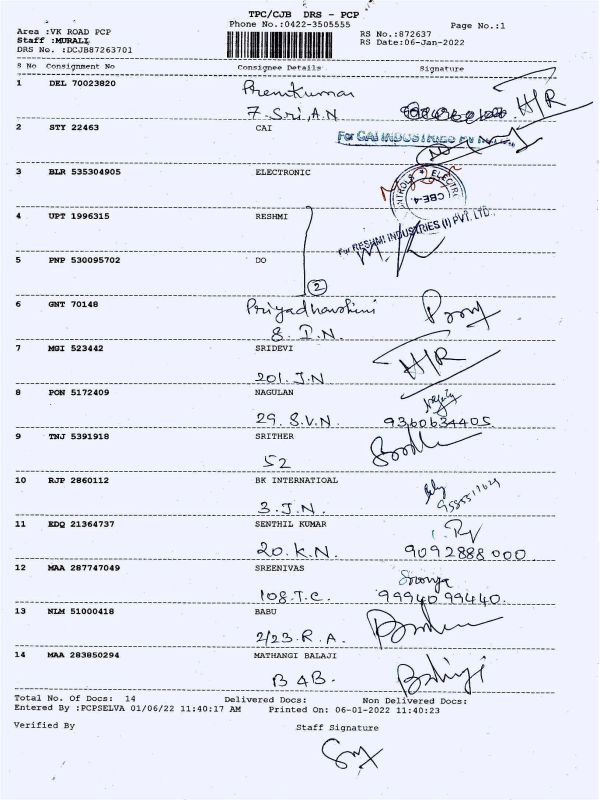 TPC/CJB DRS - PCP
Area :VK ROAD PCP
Phone No.:0422-3505555
Page No.:1
Staff :MURALI
RS No.:872637
DRS No. :DCJB87263701
RS Date:06-Jan-2022
S No Consignment No Consignee Details Signature
1 DEL 70023820 Premkumar H/R
7. Sri, A.N
2 STY 22463 CAI
For CAI INDUSTRIES
3 BLR 535304905 ELECTRONIC
CONTROLS ELECTRO CBE-4
4 UPT 1996315 RESHMI
For RESHMI INDUSTRIES (I) PVT. LTD.,
5 PNP 530095702 DO
2
6 GNT 70148 Priyadharshini
8. I.N.
7 MGI 523442 SRIDEVI H/R
201. J.N
8 PON 5172409 NAGULAN
29. S.V.N. 9360634405
9 TNJ 5391918 SRITHER
52
10 RJP 2860112 BK INTERNATIOAL
3. J.N.
11 EDQ 21364737 SENTHIL KUMAR
20. K.N. 9092888000
12 MAA 287747049 SREENIVAS
108. T.C. 99940 99440.
13 NLM 51000418 BABU
2/23. R.A.
14 MAA 283850294 MATHANGI BALAJI
B 4B.
Total No. Of Docs: 14 Delivered Docs: Non Delivered Docs:
Entered By :PCPSELVA 01/06/22 11:40:17 AM Printed On: 06-01-2022 11:40:23
Verified By Staff Signature